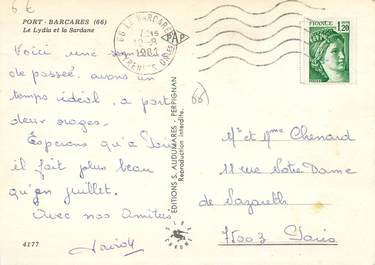 6€
PORT-BARCARES (66)
Le Lydia et la Sardane
66 LE BARCARES
PYRENEES ORIENT
FRANCE
1,20
Voici une
de passée, avons un
temps idéal, a part
deux orages.
Esperons qu'a Paris
il fait plus beau
qu'en juillet.
Avec nos Amitiés
4177
EDITIONS S. AUDUMARES - PERPIGNAN
Reproduction interdite.
66
Mr et Mme Chenard
11 rue Notre Dame
de Nazareth
75003 Paris